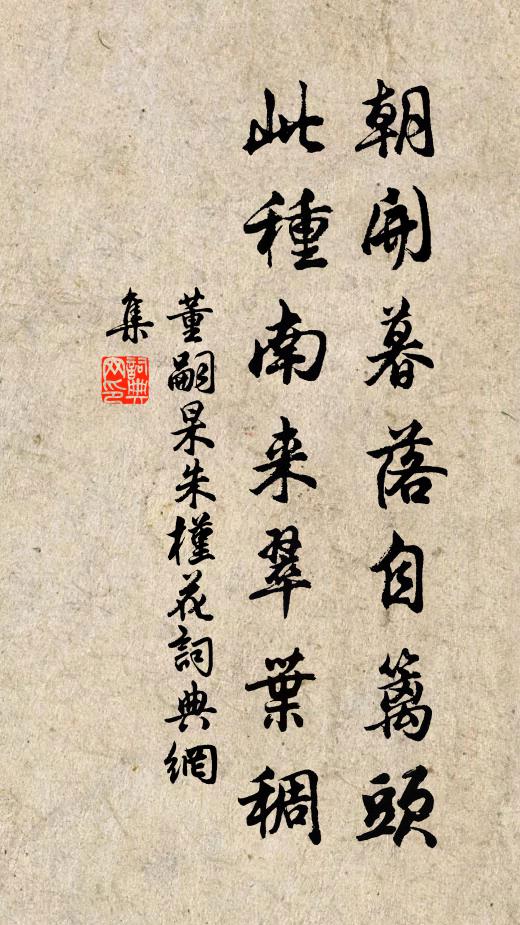 朝開暮落自籬頭
此種南来翠葉稠
董嗣杲朱槿花詞典網
集
詞典
网印